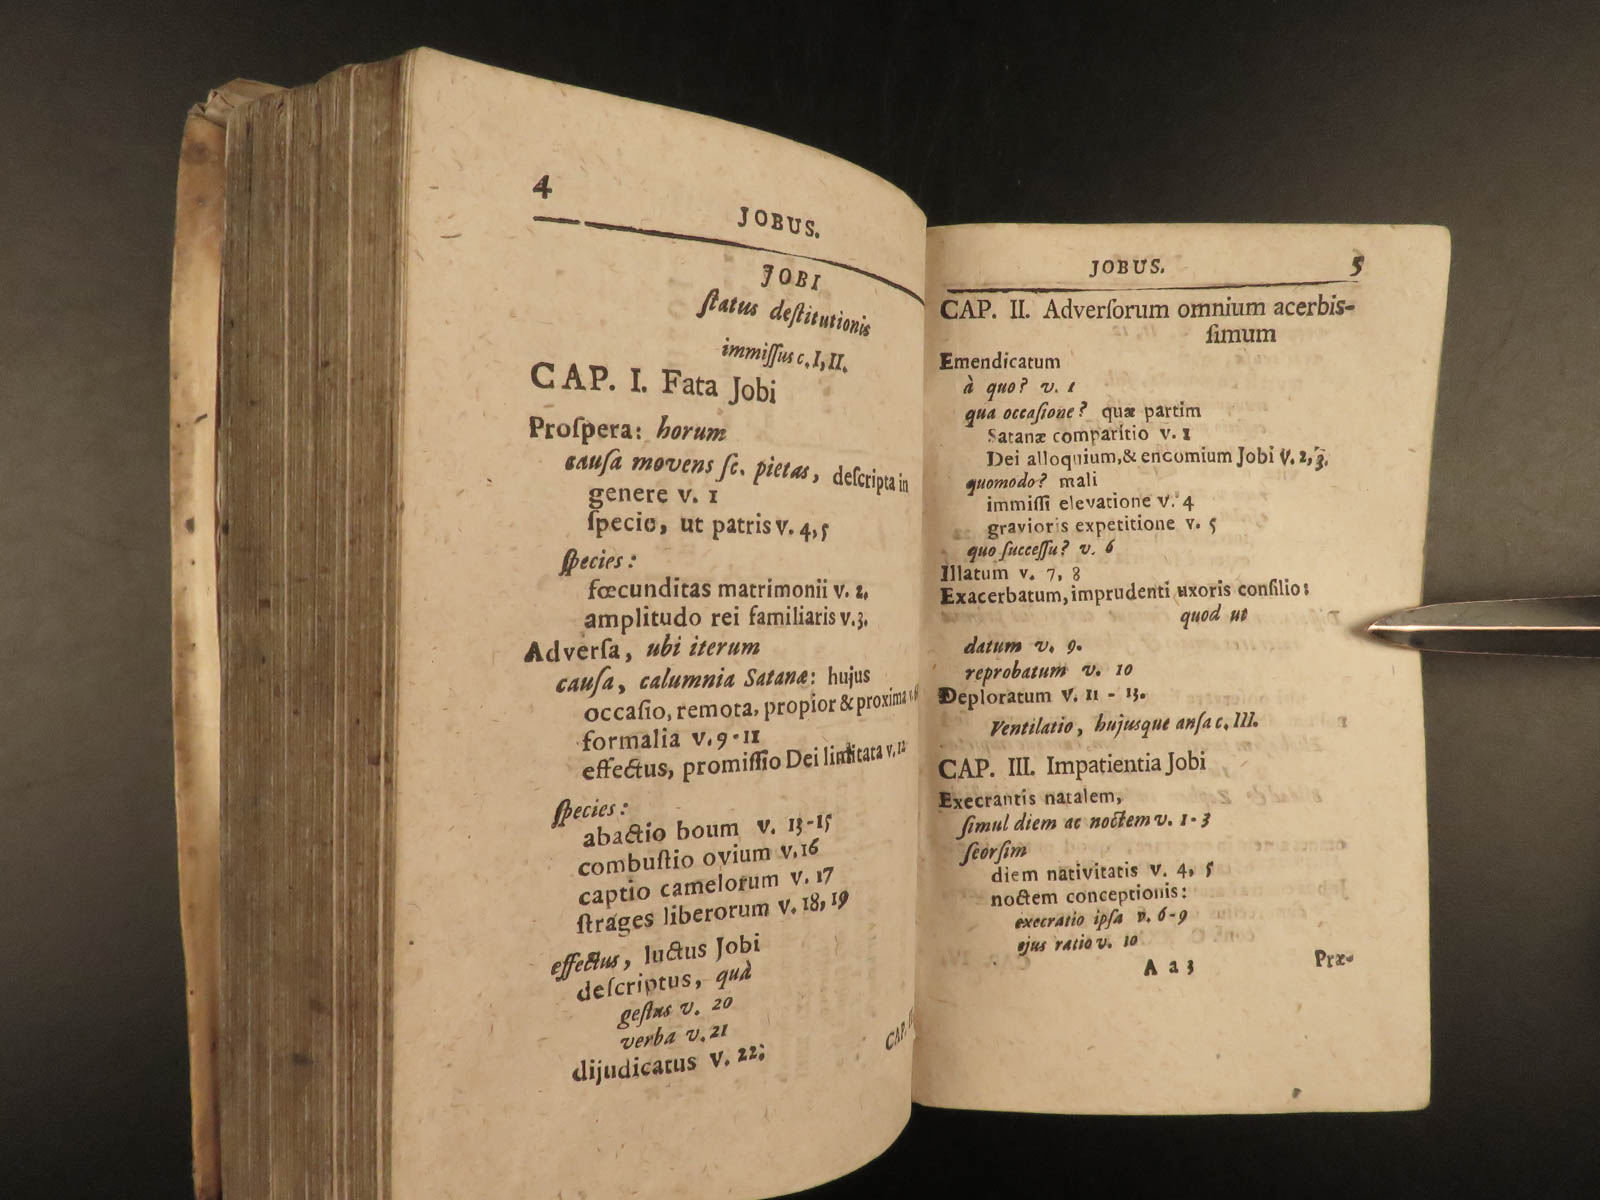 4
JOBUS.
JOBI
ſtatus deſtitutionis
immiſſus c. I, II.
CAP. I. Fata Jobi
Proſpera: horum
cauſa movens ſc. pietas, deſcripta in
genere v. 1
ſpecie, ut patris v. 4, 5
ſpecies:
fœcunditas matrimonii v. 2,
amplitudo rei familiaris v. 3.
Adverſa, ubi iterum
cauſa, calumnia Satanæ: hujus
occaſio, remota, propior & proxima v.
formalia v. 9-11
effectus, promiſſio Dei limitata v. 12
ſpecies:
abactio boum v. 13-15
combuſtio ovium v. 16
captio camelorum v. 17
ſtrages liberorum v. 18, 19
effectus, luctus Jobi
deſcriptus, quà
geſtus v. 20
verba v. 21
dijudicatus v. 22:
CAP.
JOBUS. 5
CAP. II. Adverſorum omnium acerbiſ-
ſimum
Emendicatum
à quo? v. 1
qua occaſione? quæ partim
Satanæ comparitio v. 1
Dei alloquium, & encomium Jobi v. 2, 3.
quomodo? mali
immiſſi elevatione v. 4
gravioris expetitione v. 5
quo ſucceſſu? v. 6
Illatum v. 7, 8
Exacerbatum, imprudenti uxoris conſilio:
quod ut
datum v. 9.
reprobatum v. 10
Deploratum v. 11 - 13.
Ventilatio, hujusque anſa c. III.
CAP. III. Impatientia Jobi
Execrantis natalem,
ſimul diem ac noctem v. 1-3
ſeorſim
diem nativitatis v. 4, 5
noctem conceptionis:
execratio ipſa v. 6-9
ejus ratio v. 10
A a 3 Præ-